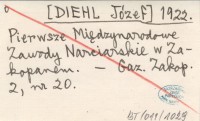 [DIEHL Józef] 1922.
Pierwsze Międzynarodowe
Zawody Narciarskie w Za-
kopanem. — Gaz. Zakop.
2, nr 20.